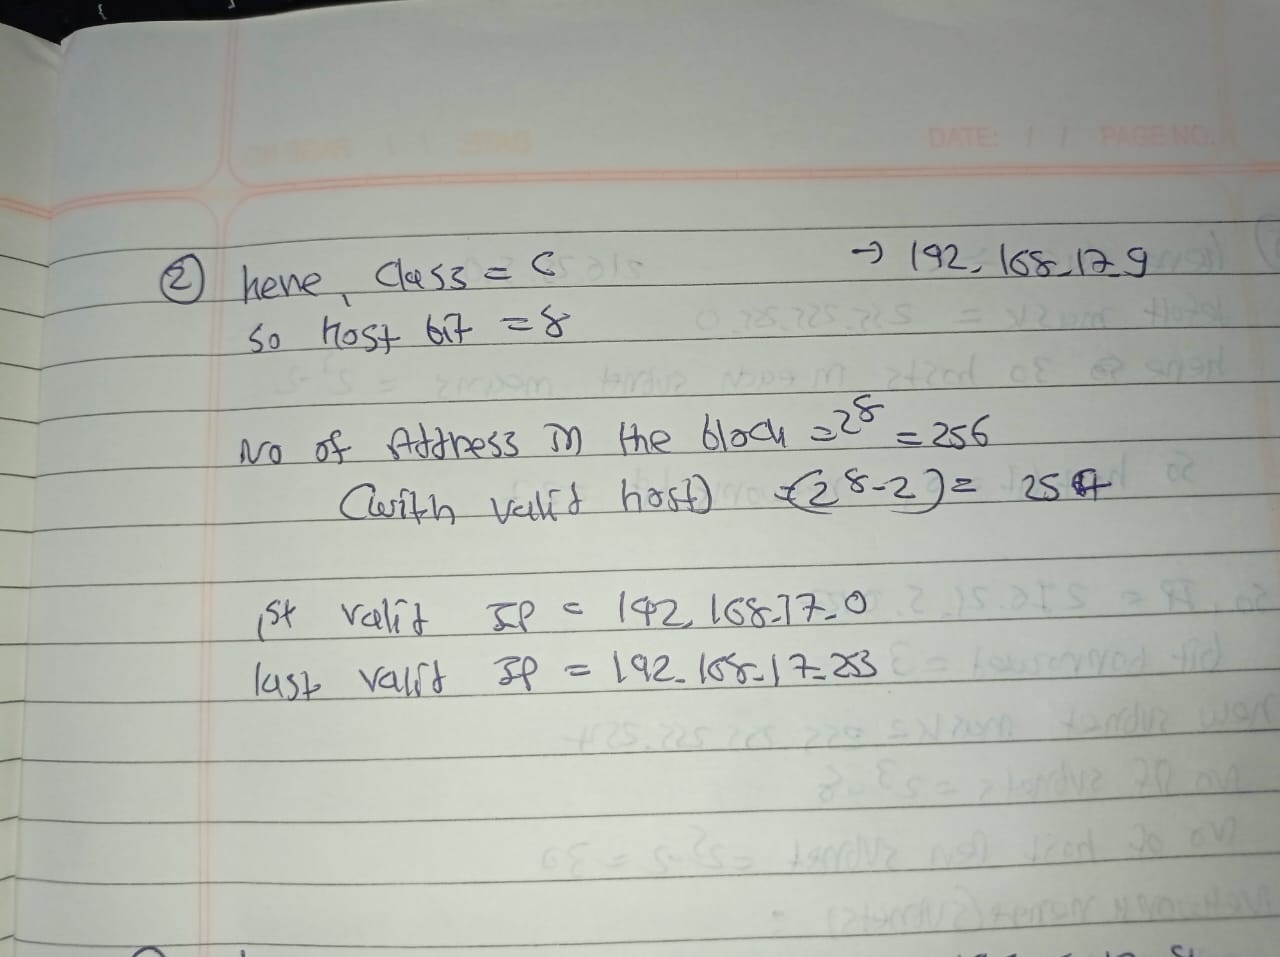 DATE: / / PAGE NO.
② here, Class = C → 192.168.17.9
so host bit = 8
No of Address in the block = 2^8 = 256
(with valid host) = (2^8-2) = 254
1st valid IP = 192.168.17.0
last valid IP = 192.168.17.253